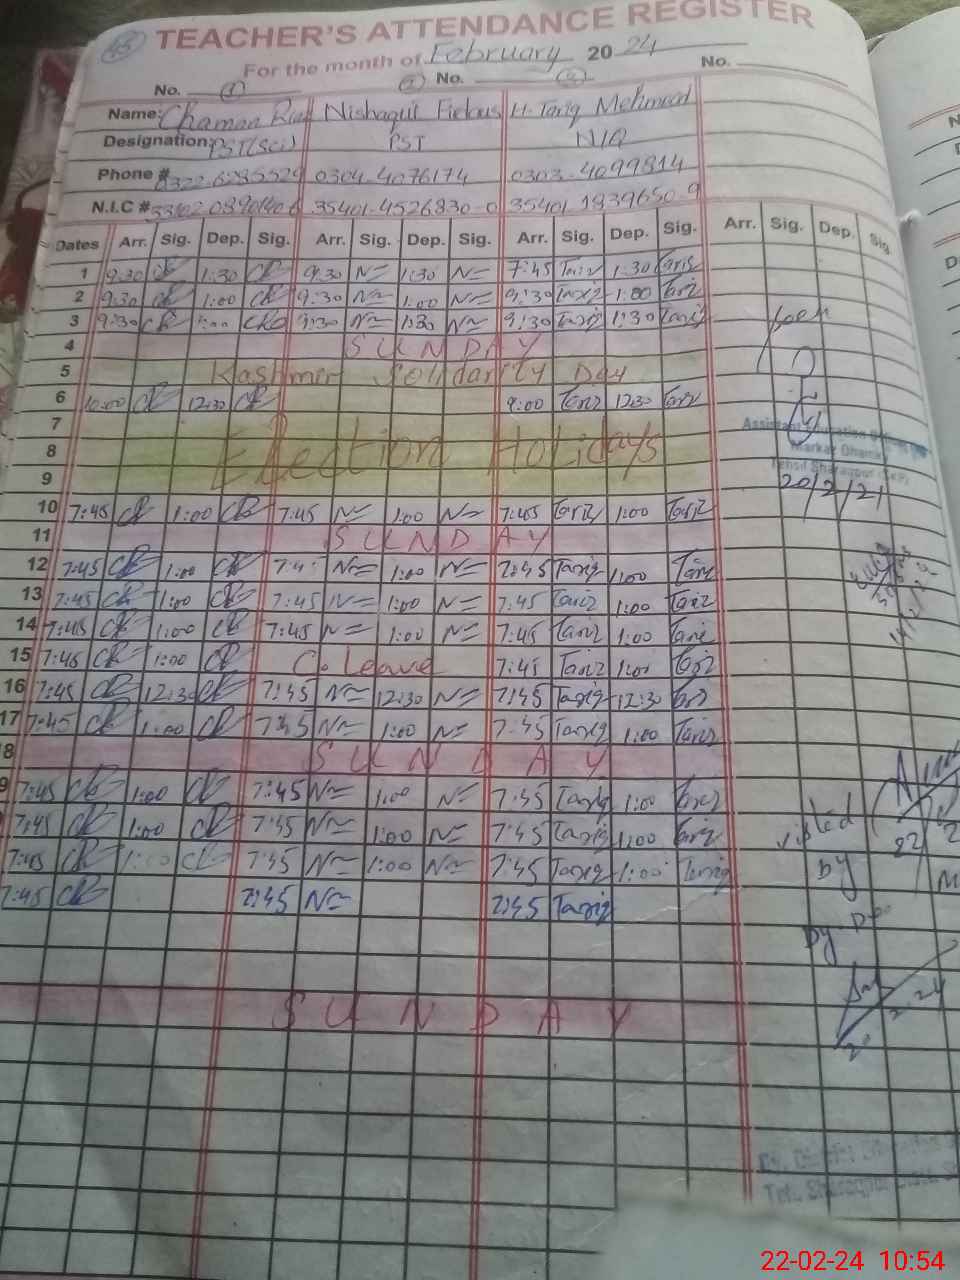 45 TEACHER'S ATTENDANCE REGISTER
For the month of February 20 24
No. 1 No. No. 
Name: Chaman Nishaqut Firdous H. Tariq Mehmood
Designation: PST(Sci) PST N/Q
Phone # 0304-4076174 0303-4099814
N.I.C # 35401-4526830-0 35401 1839650-9
Dates Arr. Sig. Dep. Sig. Arr. Sig. Dep. Sig. Arr. Sig. Dep. Sig. Arr. Sig. Dep. Sig.
1 9:30 CR 1:30 CR 9:30 N= 1:30 N= 7:45 Tariq 1:30 Tariq
2 9:30 CR 1:00 CR 9:30 N= 1:00 N= 9:30 Tariq 1:00 Tariq
3 9:30 CR 1:00 CR 9:30 N= 1:30 N= 9:30 Tariq 1:30 Tariq
seen
4 SUNDAY
5 Kashmir Solidarity Day
6 10:00 CR 12:30 CR 9:00 Tariq 12:30 Tariq
7
8 Election Holidays
9
Assistant Education
Markaz
Tehsil Sharaqpur
20/2/24
10 7:45 CR 1:00 CR 7:45 N= 1:00 N= 7:45 Tariq 1:00 Tariq
11 SUNDAY
12 7:45 CR 1:00 CR 7:4 N= 1:00 N= 7:45 Tariq 1:00 Tariq
13 7:45 CR 1:00 CR 7:45 N= 1:00 N= 7:45 Tariq 1:00 Tariq
14 7:45 CR 1:00 CR 7:45 N= 1:00 N= 7:45 Tariq 1:00 Tariq
15 7:45 CR 1:00 CR C. Leave 7:45 Tariq 1:00 Tariq
16 7:45 CR 12:30 CR 7:45 N= 12:30 N= 7:45 Tariq 12:30 Tariq
17 7:45 CR 1:00 CR 7:45 N= 1:00 N= 7:45 Tariq 1:00 Tariq
8 SUNDAY
9 7:45 CR 1:00 CR 7:45 N= 1:00 N= 7:45 Tariq 1:00 Tariq
7:45 CR 1:00 CR 7:45 N= 1:00 N= 7:45 Tariq 1:00 Tariq
7:45 CR 1:00 CR 7:45 N= 1:00 N= 7:45 Tariq 1:00 Tariq
7:45 CR 7:45 N= 7:45 Tariq
visited
by
Dy.
SUNDAY
Dy. District Education
Teh. Sharaqpur
22-02-24 10:54